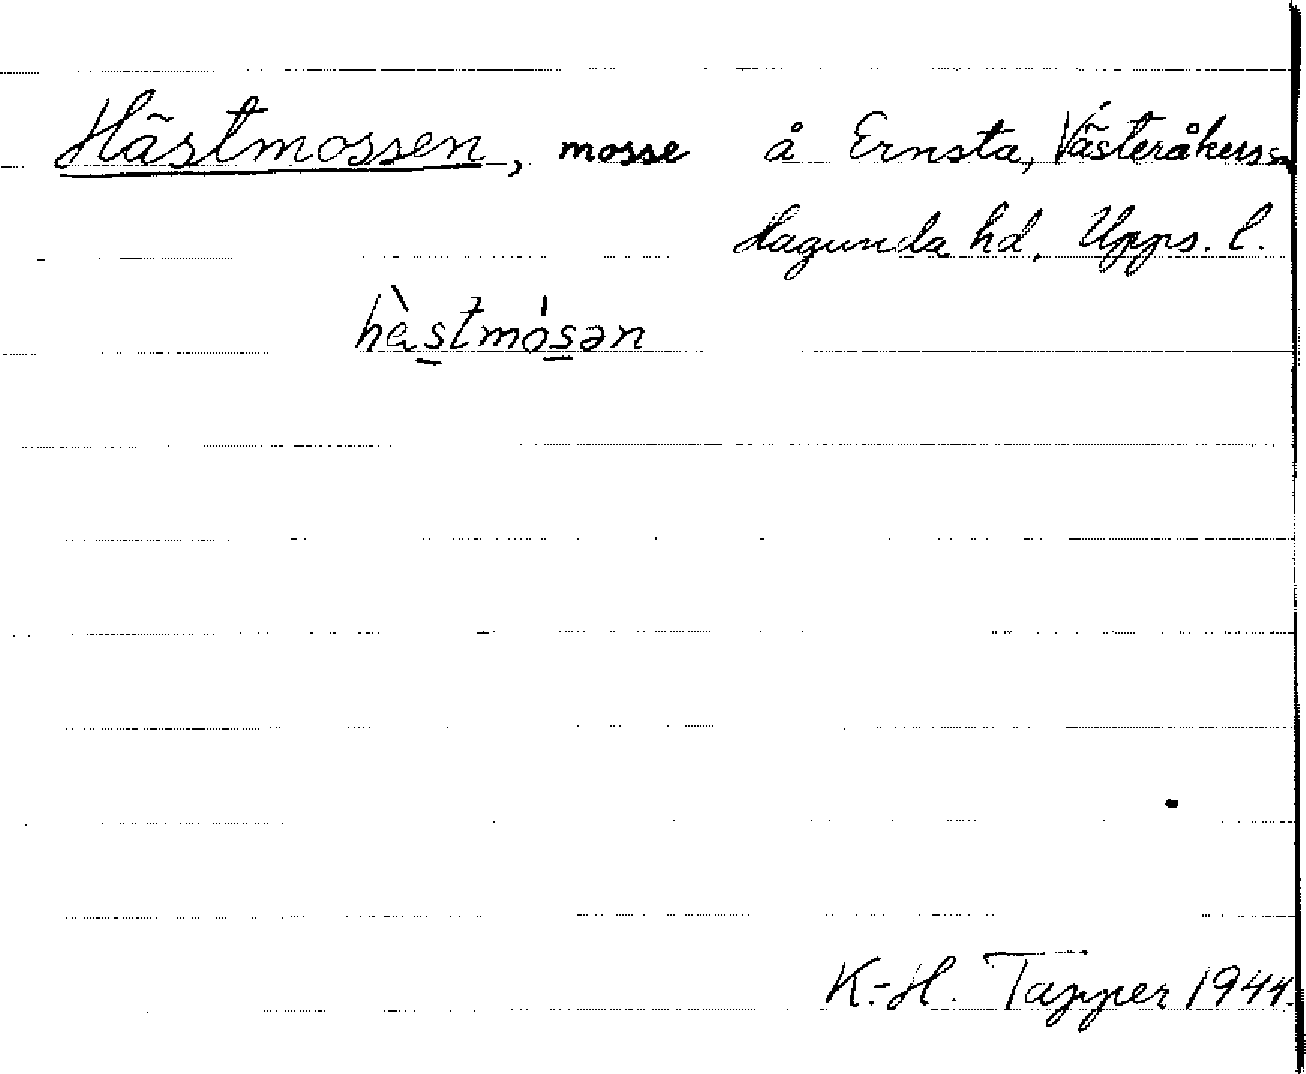 Hästmossen, mosse å Ernsta, Västeråkers s
Hagunda hd, Upps. l.
hàstmósən
K.-H. Tapper 1944.